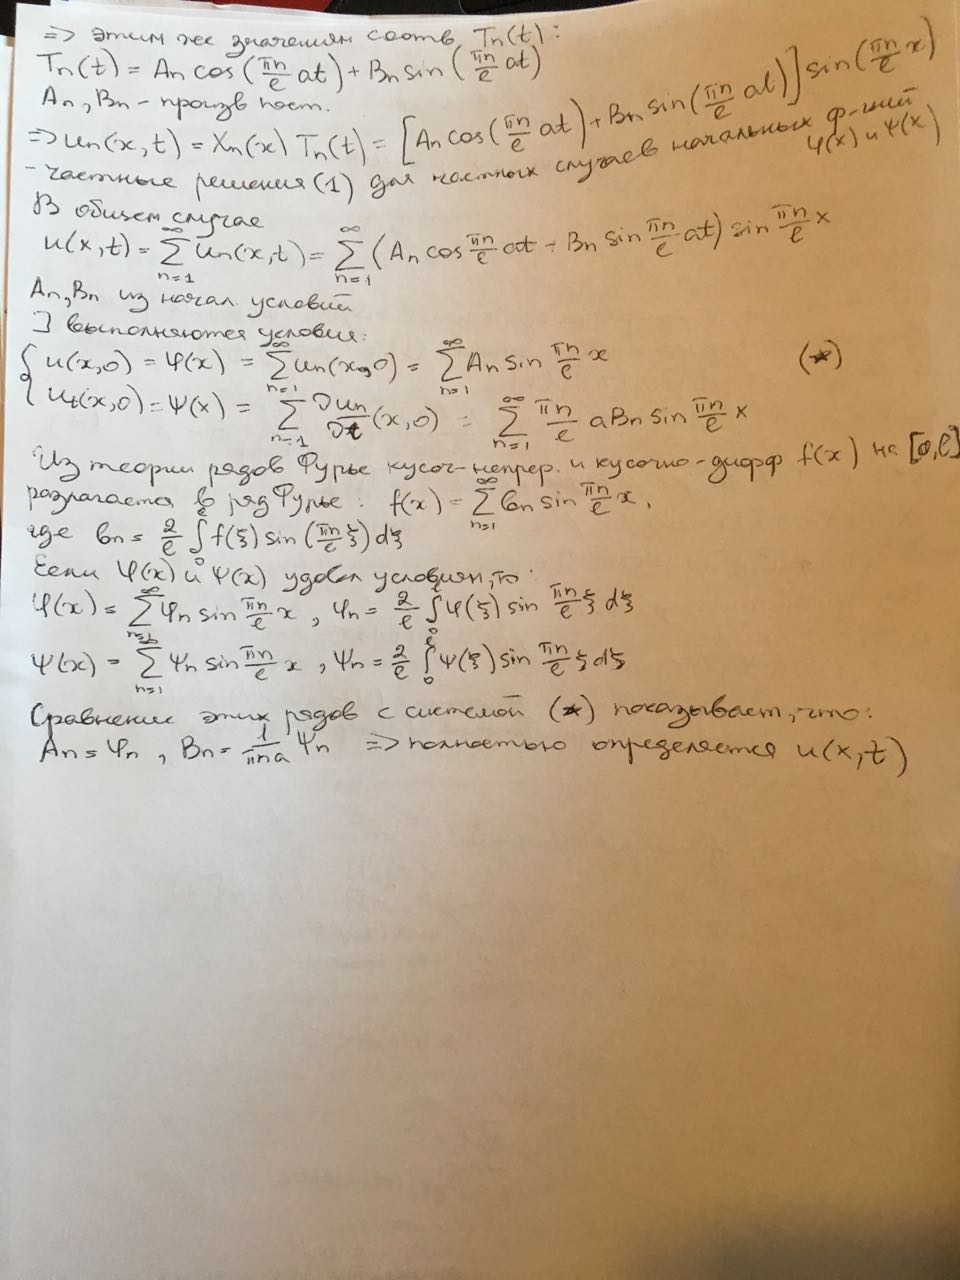 => этим же значениям соотв Tn(t):
Tn(t) = An cos(πn/l at) + Bn sin(πn/l at)
An, Bn - произв пост.
=> un(x,t) = Xn(x) Tn(t) = [An cos(πn/l at) + Bn sin(πn/l at)] sin(πn/l x)
- частные решения (1) для частных случаев начальных ф-ций φ(x) и ψ(x)
В общем случае
u(x,t) = ∑_{n=1}^{∞} un(x,t) = ∑_{n=1}^{∞} (An cos πn/l at + Bn sin πn/l at) sin πn/l x
An, Bn из начал. условий
] выполняются условия:
{ u(x,0) = φ(x) = ∑_{n=1}^{∞} un(x,0) = ∑_{n=1}^{∞} An sin πn/l x (*)
ut(x,0) = ψ(x) = ∑_{n=1}^{∞} ∂un/∂t (x,0) = ∑_{n=1}^{∞} πn/l aBn sin πn/l x
Из теории рядов Фурье кусоч-непрер. и кусочно-дифф f(x) на [0,l]
разлагается в ряд Фурье: f(x) = ∑_{n=1}^{∞} bn sin πn/l x,
где bn = 2/l ∫_0^l f(ξ) sin(πn/l ξ) dξ
Если φ(x) и ψ(x) удовл условиям, то:
φ(x) = ∑_{n=1}^{∞} φn sin πn/l x, φn = 2/l ∫_0^l φ(ξ) sin πn/l ξ dξ
ψ(x) = ∑_{n=1}^{∞} ψn sin πn/l x, ψn = 2/l ∫_0^l ψ(ξ) sin πn/l ξ dξ
Сравнение этих рядов с системой (*) показывает, что:
An = φn, Bn = 1/πna ψn => полностью определяется u(x,t)